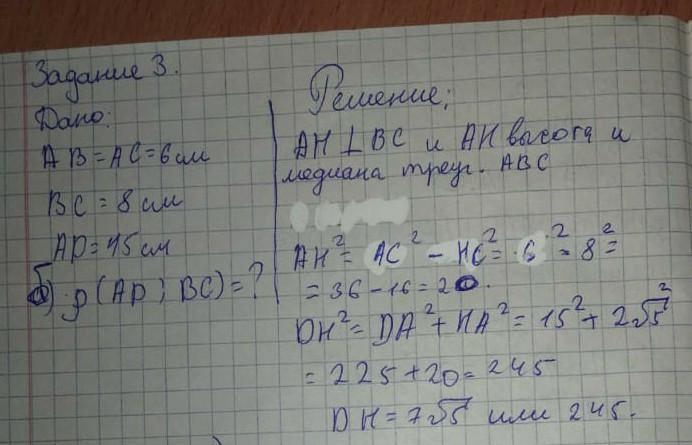 Задание 3.
Дано:
AB = AC = 6 см
BC = 8 см
AD = 15 см
б) ρ (AD; BC) = ?
Решение;
AH ⊥ BC и AH высота и
медиана треуг. ABC
AH² = AC² - HC² = 6² - 8² =
= 36 - 16 = 20.
DH² = DA² + HA² = 15² + 2√5²
= 225 + 20 = 245
DH = 7√5 или 245.